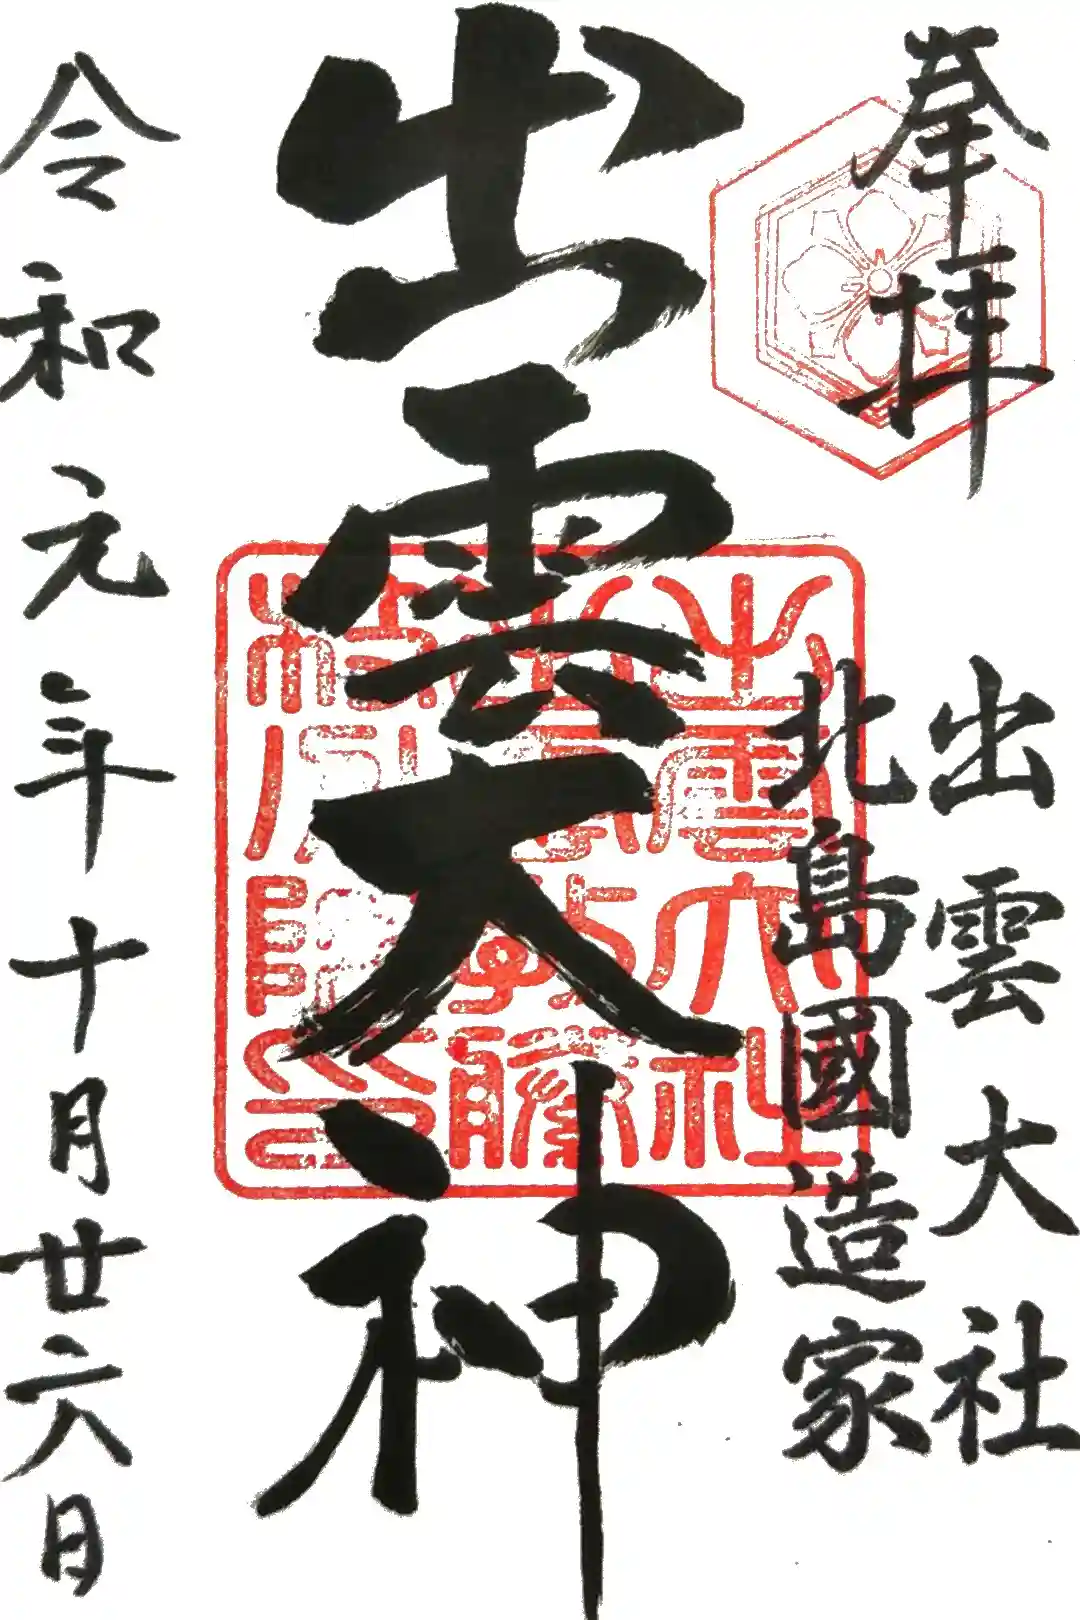 奉拝
出雲大社
北島國造家
出雲大神
令和元年十月廿六日